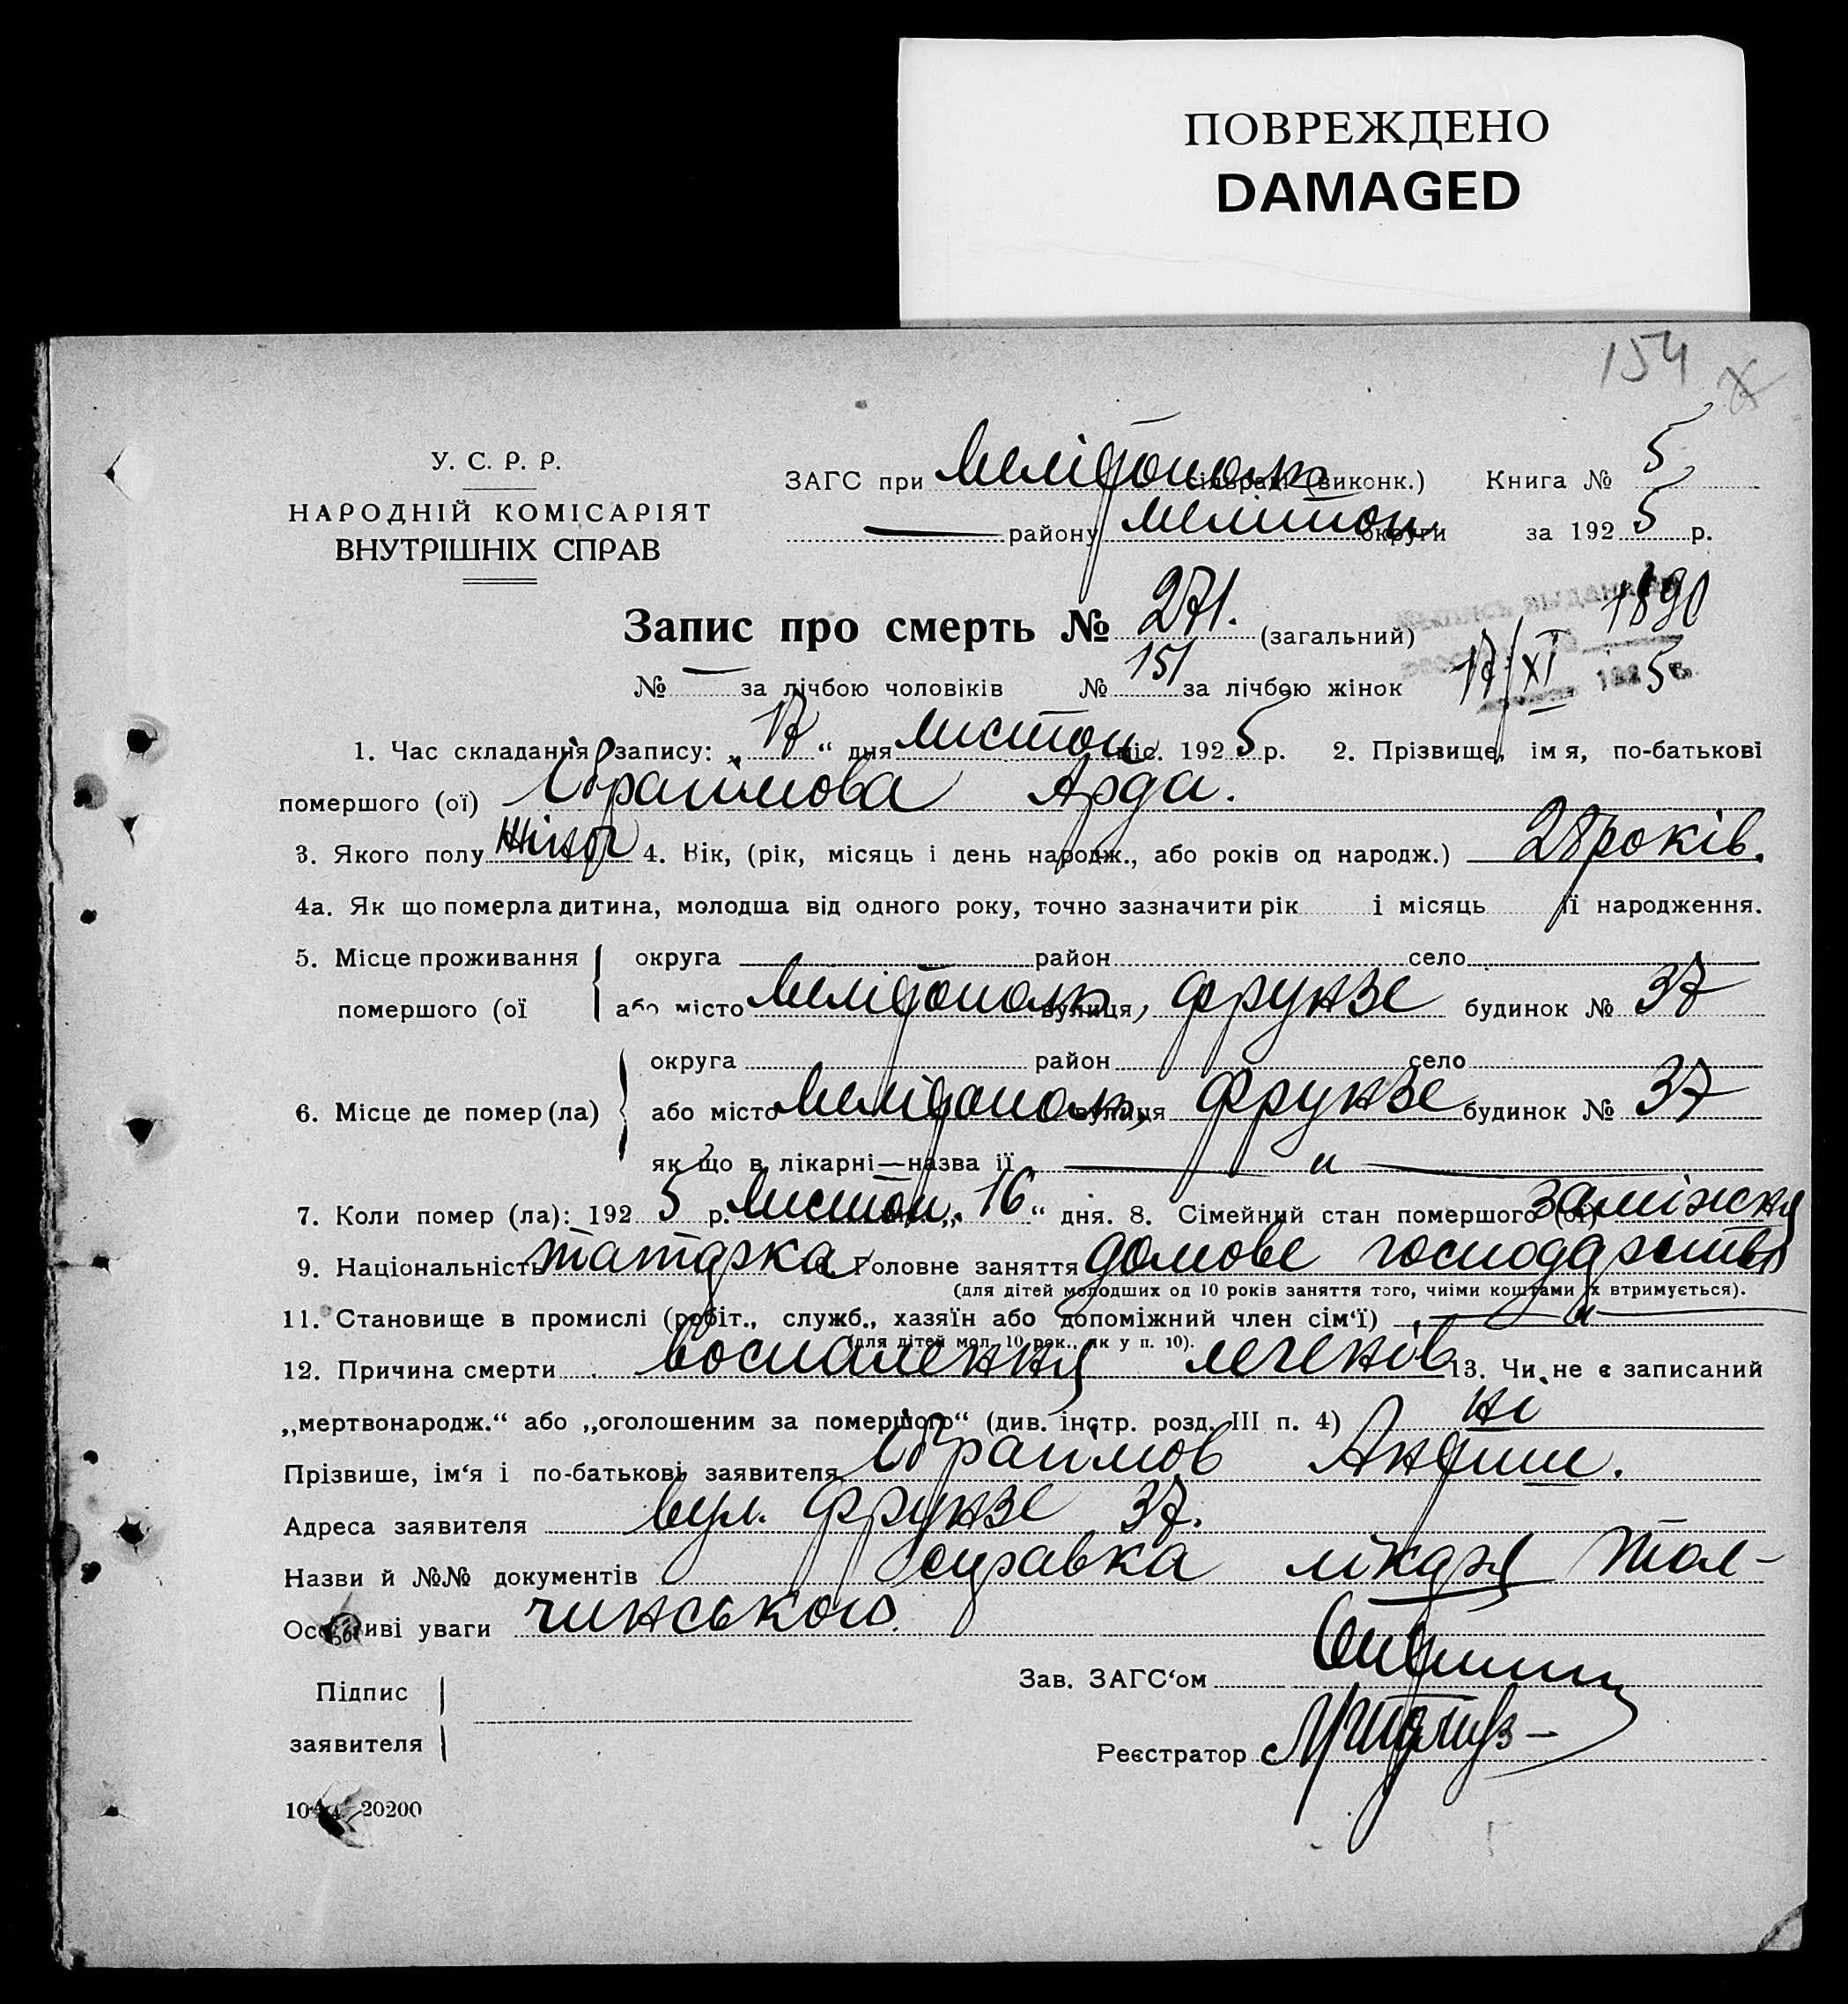 ПОВРЕЖДЕНО
DAMAGED
154
У. С. Р. Р.
НАРОДНІЙ КОМІСАРІЯТ
ВНУТРІШНІХ СПРАВ
ЗАГС при Мелітополь сільраді (виконк.) Книга № 5
— району Мелітоп. округи за 1925 р.
Запис про смерть № 271. (загальний)
1890
№ — за лічбою чоловіків № 151 за лічбою жінок
17/XI 1925 г.
1. Час складання запису: „17“ дня листоп. міс. 1925 р. 2. Прізвище, імя, по-батькові
помершого (ої) Ібраімова Арда.
3. Якого полу жіноч 4. Вік, (рік, місяць і день народж., або років од народж.) 28 років.
4а. Як що померла дитина, молодша від одного року, точно зазначити рік і місяць її народження.
5. Місце проживання округа район село
помершого (ої або місто Мелітополь, вулиця, Фрунзе будинок № 37
округа район село
6. Місце де помер (ла) або місто Мелітополь, вулиця Фрунзе будинок № 37
як що в лікарні—назва її — „ —
7. Коли помер (ла): 1925 р. листоп. „16“ дня. 8. Сімейний стан помершого (ої) заміжня
9. Національність татарка Головне заняття домове господарство
(для дітей молодших од 10 років заняття того, чиїми коштами їх втримується).
11. Становище в промислі (робіт., служб., хазяїн або допоміжний член сім‘ї) — „ —
(для дітей мол. 10 рок., як у п. 10).
12. Причина смерти воспалення легенів 13. Чи не є записаний
„мертвонародж.“ або „оголошеним за помершого“ (див. інстр. розд. III п. 4) ні
Прізвише, ім‘я і по-батькові заявителя Ібраімов
Адреса заявителя вул. Фрунзе 37.
Назви й №№ документів справка лікаря Тол-
Особливі уваги чинського.
Підпис
заявителя
Зав. ЗАГС‘ом
Реєстратор
20200